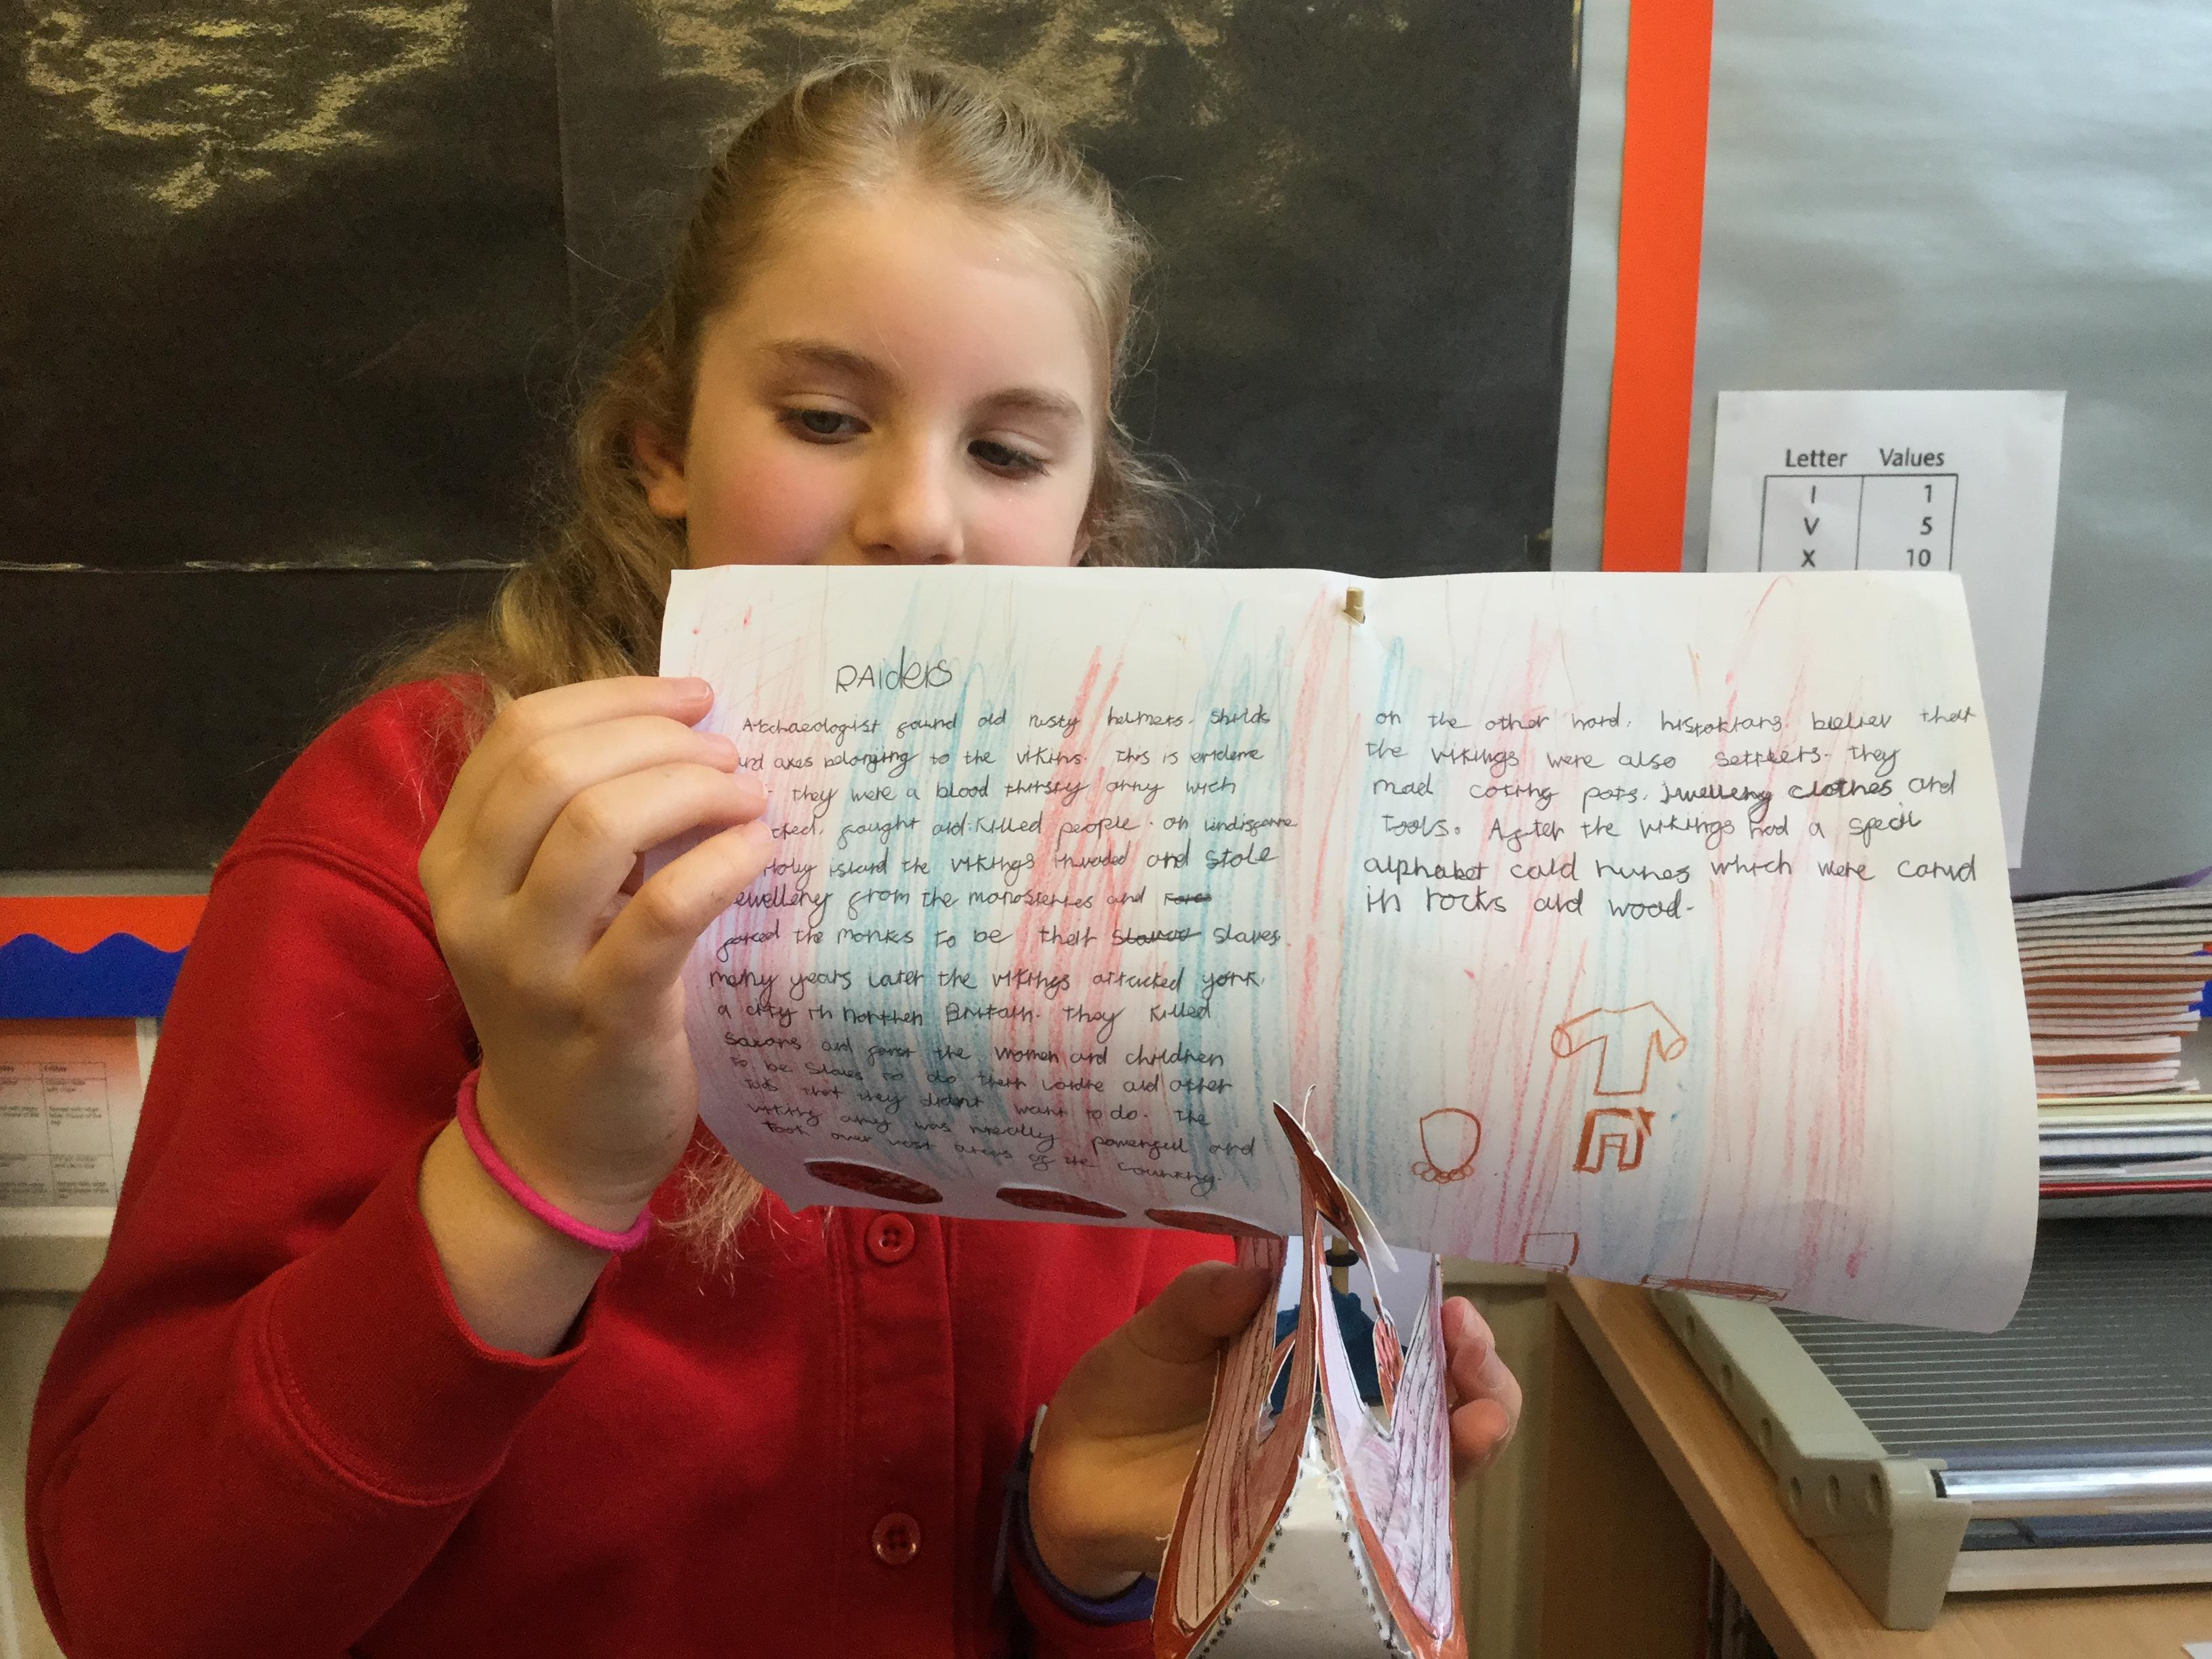 RAiders
Archaeologist found old rusty helmets. Shilds
and axes belonging to the vikins. This is evidence
they were a blood thirsty army wich
fought and killed people. On Lindisfarne
Holy island the vikings invaded and stole
jewellery from the monosterries and
forced the monks to be their slaves.
many years later the vikings attacked york.
a city in northen Britain. they killed
saxons and forst the women and children
to be slaves to do there and other
that they didnt want to do. The
viking army was really powerful and
took over vast areas of the country.
on the other hand. historians. believ that
the vikings were also settlers. they
mad coking pots. jwellery clothes and
tools. After the vikings had a specil
alphabet cald runes which were carvd
in rocks and wood.
Letter Values
I 1
V 5
X 10